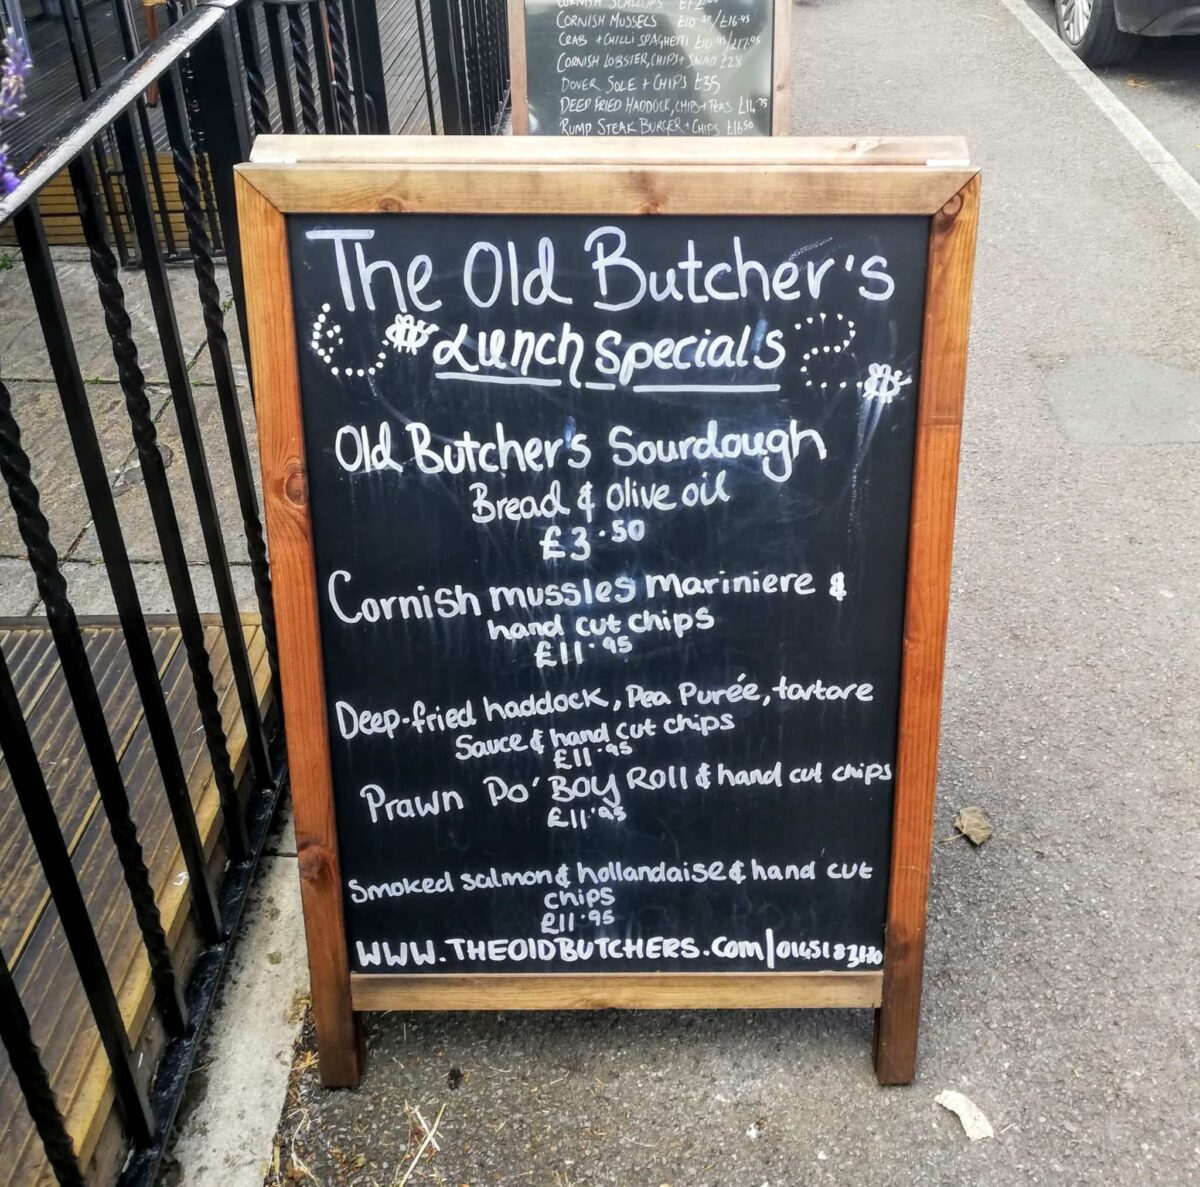 CORNISH SCALLOPS
CORNISH MUSSELS £10.50/£16.95
CRAB + CHILLI SPAGHETTI £10.95/£17.95
CORNISH LOBSTER, CHIPS + SALAD £28
DOVER SOLE + CHIPS £35
DEEP FRIED HADDOCK, CHIPS + PEAS £14.75
RUMP STEAK BURGER + CHIPS £16.50
The Old Butcher's
Lunch Specials
Old Butcher's Sourdough
Bread & Olive oil
£3.50
Cornish mussles Mariniere &
hand cut chips
£11.95
Deep-fried haddock, Pea Purée, tartare
Sauce & hand cut chips
£11.95
Prawn Po' Boy Roll & hand cut chips
£11.95
Smoked salmon & hollandaise & hand cut
chips
£11.95
WWW.THEOLDBUTCHERS.Com/